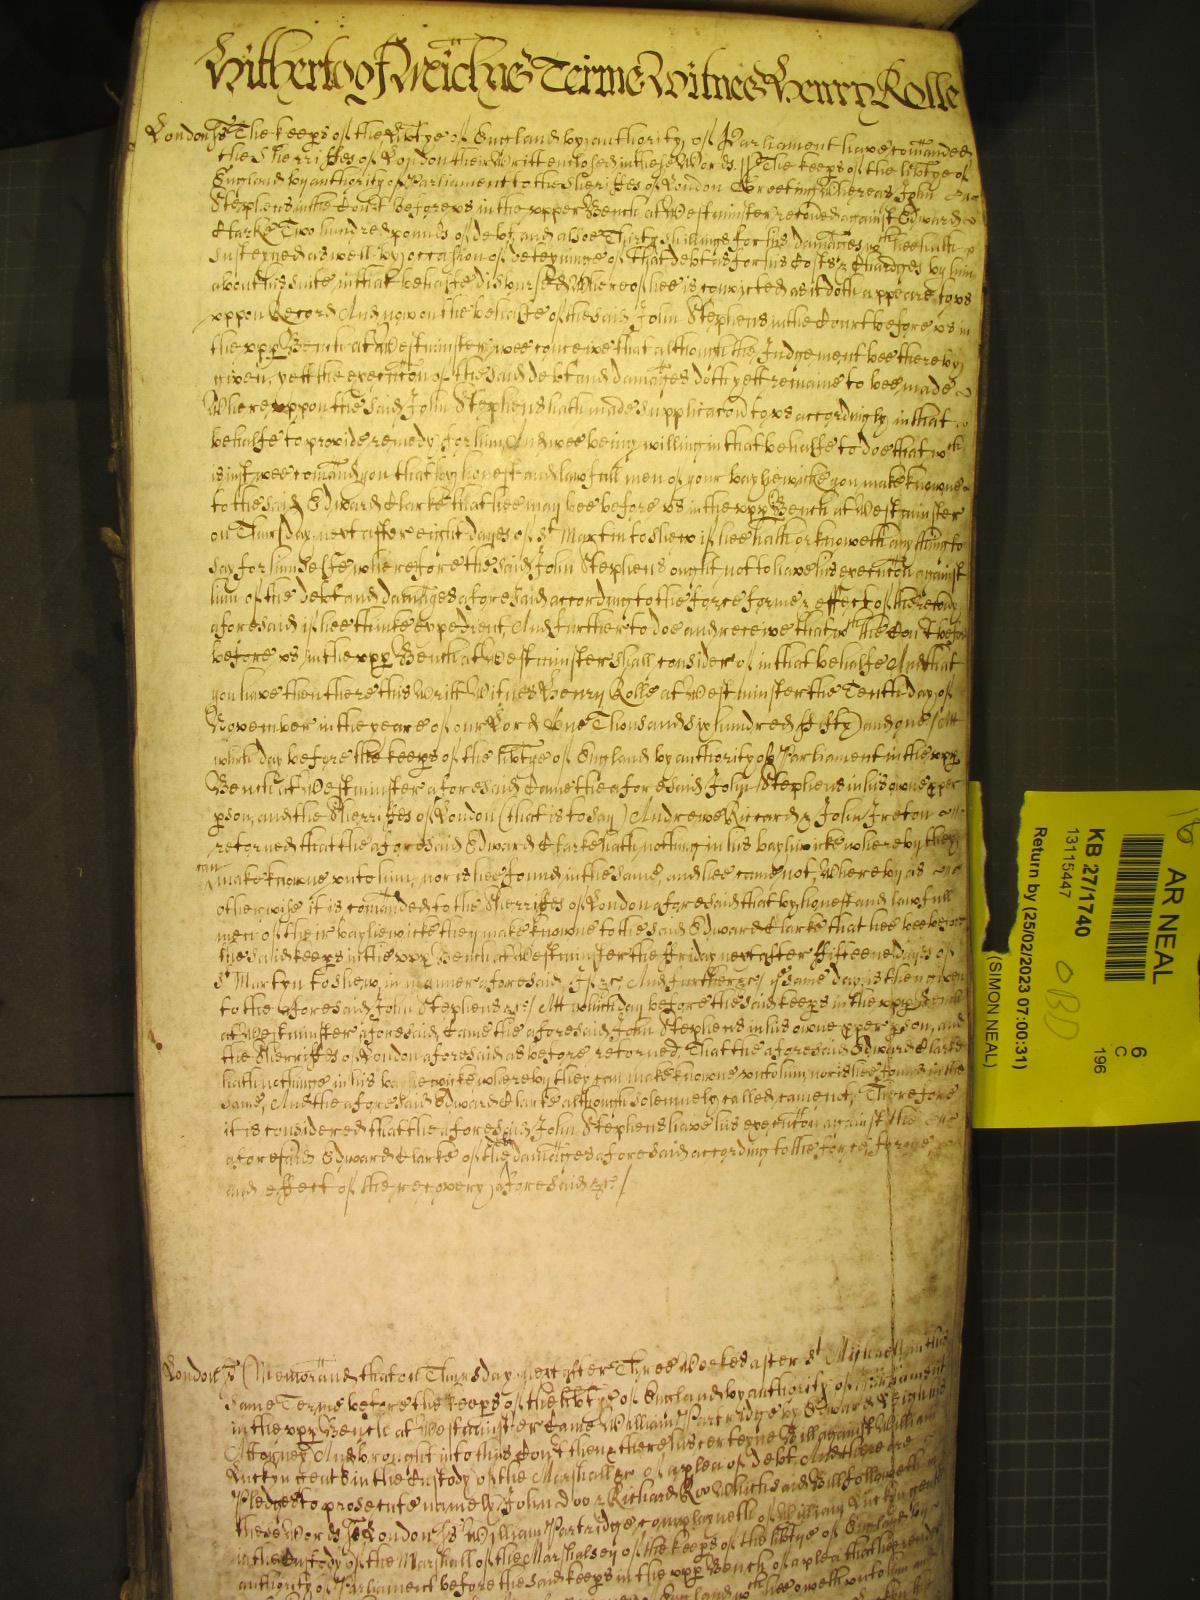 Hitherto of Michus Terme Witnes Henry Rolle
London ss The keeps of the libtye of England by authority of Parliament have comanded
the Sherriffes of London their Writt enclosed in these Words ss The keeps of the libtye of
England by authority of Parliament to the Sheriffes of London Greeting Whereas John
Stephens in the Court before us in the upper Bench at Westminster recoued against Edward
Clarke Two hundred pounds of debt and alsoe Thirty shillings for his damages wch hee hath
susteyned as well by occassion of deteyninge of that debt as for his Costs & Chardges by him
about his suite in that behalfe disbursed Whereof hee is convicted as it doth appeare to us
uppon Record And now on the behalfe of the said John Stephens in the Court before us in
the upp Bench at Westminster wee conceive that although the Judgement bee thereby
given, yett the execucon of the said debt and damages doth yett remaine to bee made
Whereuppon the said John Stephens hath made supplicacon to us accordingly in that
behalfe to provide remedy for him And wee being willing in that behalfe to doe that wch
is just wee comand you that by honest and lawfull men of your bayliewicke you make knowne
to the said Edward Clarke that hee may bee before us in the upp Bench at Westminster
on Thursday next after eight dayes of St Martin to shew if hee hath or knoweth any thing to
say for himselfe wherefore the said John Stephens ought not to have his execucon against
him of the debt and damages aforesaid according to the force forme & effect of the recovy
aforesaid if hee thinke expedient, And further to doe and receive that wch the Court before
before us in the upp Bench at Westminster shall consider of in that behalfe And that
you have then there this Writt Witnes Henry Rolle at Westminster the Tenth day of
November in the yeare of our Lord One Thousand six hundred fifty and one / Att
which day before the keeps of the libtye of England by authority of Parliament in the upp
Bench at Westminster aforesaid Came the aforesaid John Stephens in his owne pper
pson, and the Sherriffes of London (that is to say) Andrewe Riccard & John Ireton
retorned that the aforesaid Edward Clarke hath nothing in his bayliwicke whereby they
can
make knowne unto him, nor is hee found in the same, and hee came not, Whereby as
otherwise it is comanded to the Sherriffes of London aforesaid that by honest and lawfull
men of their bayliewicke they make knowne to the said Edward Clarke that hee bee before
the said keeps in the upp Bench at Westminster the Friday next after fifteene dayes of
St Martyn to shew in manner aforesaid, if &c And further &c / ye same day is then given
to the aforesaid John Stephens &c / Att which day before the said keeps in the upp Bench
at Westminster aforesaid Came the aforesaid John Stephens in his owne pper pson, and
the Sherriffes of London aforesaid as before retorned, That the aforesaid Edward Clarke
hath nothinge in his bayliewicke whereby they can make knowne unto him, nor is hee found in the
same, And the aforesaid Edward Clarke although solemnely called came not, Therefore
it is considered that the aforesaid John Stephens have his execucon against the
aforesaid Edward Clarke of the debt damages aforesaid according to the force forme
and effect of the recovery aforesaid &c /
London ss Memorand that on Thursday next after Three Weekes after St Michael in this
same Terme before the keeps of the libtye of England by authority of Parliament
in the upp Bench at Westminster Came William Partridge by Edward
Attorney And brought into this Court then & there his certeyne Bill against William
Luckyn gent in the Custody of the Marshall &c of a plea of debt, And there are
Pledges to prosecute namely John Doo & Richard Roo Which said Bill followeth in
these Words ss London ss William Partridge complayneth of William Luckyn gent
in the Custody of the Marshall of the Marshalsey of the keeps of the libtye of England by
authority of Parliament before the said keeps in the upp Bench of a plea that hee render
England wch hee oweth unto him and
AR NEAL
6
C
196
KB 27/1740
13115447
Return by (25/02/2023 07:00:31)
(SIMON NEAL)